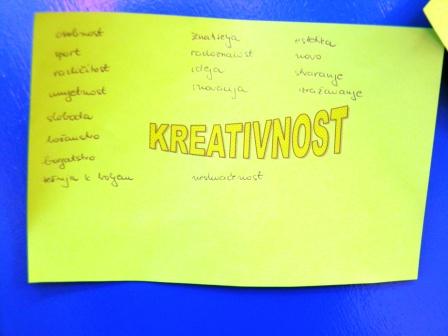 osobnost
sport
različitost
umjetnost
sloboda
božansko
bogatstvo
težnja k boljem
radoznalost
ideja
inovacija
novo
stvaranje
istraživanje
KREATIVNOST